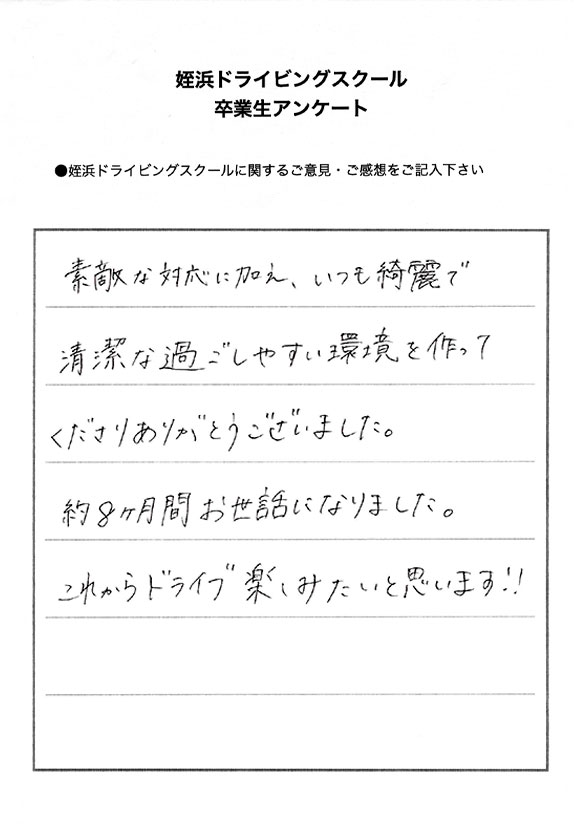 姪浜ドライビングスクール
卒業生アンケート
●姪浜ドライビングスクールに関するご意見・ご感想をご記入下さい
素敵な対応に加え、いつも綺麗で
清潔な過ごしやすい環境を作って
くださりありがとうございました。
約8ヶ月間お世話になりました。
これからドライブ楽しみたいと思います!!